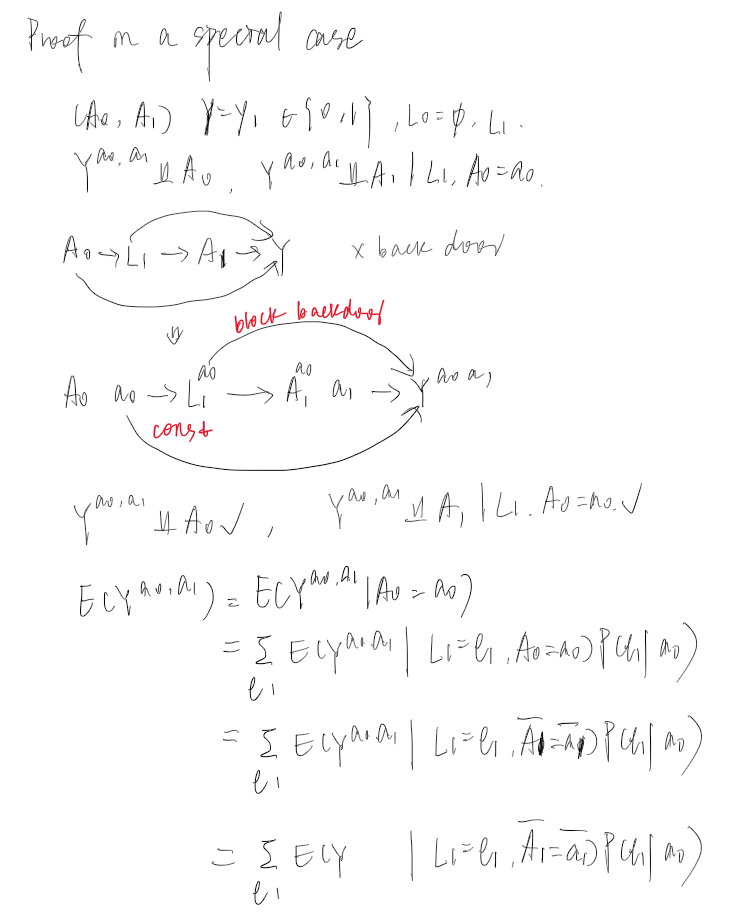 Proof in a special case
(A₀, A₁) Y=Y₁ ∈{0,1}, L₀=φ. L₁.
Y^{a₀,a₁} ⫫ A₀, Y^{a₀,a₁} ⫫ A₁ | L₁, A₀=a₀.
A₀ → L₁ → A₁ → Y × back door
⇓
block backdoor
A₀ a₀ → L₁^{a₀} → A₁^{a₀} a₁ → Y^{a₀ a₁}
const
Y^{a₀,a₁} ⫫ A₀ √, Y^{a₀,a₁} ⫫ A₁ | L₁. A₀=a₀. √
E(Y^{a₀,a₁}) = E(Y^{a₀,a₁} | A₀ = a₀)
= Σ_{l₁} E(Y^{a₀,a₁} | L₁=l₁, A₀=a₀) P(l₁|a₀)
= Σ_{l₁} E(Y^{a₀,a₁} | L₁=l₁, A̅₁=a̅₁) P(l₁|a₀)
= Σ_{l₁} E(Y | L₁=l₁, A̅₁=a̅₁) P(l₁|a₀)